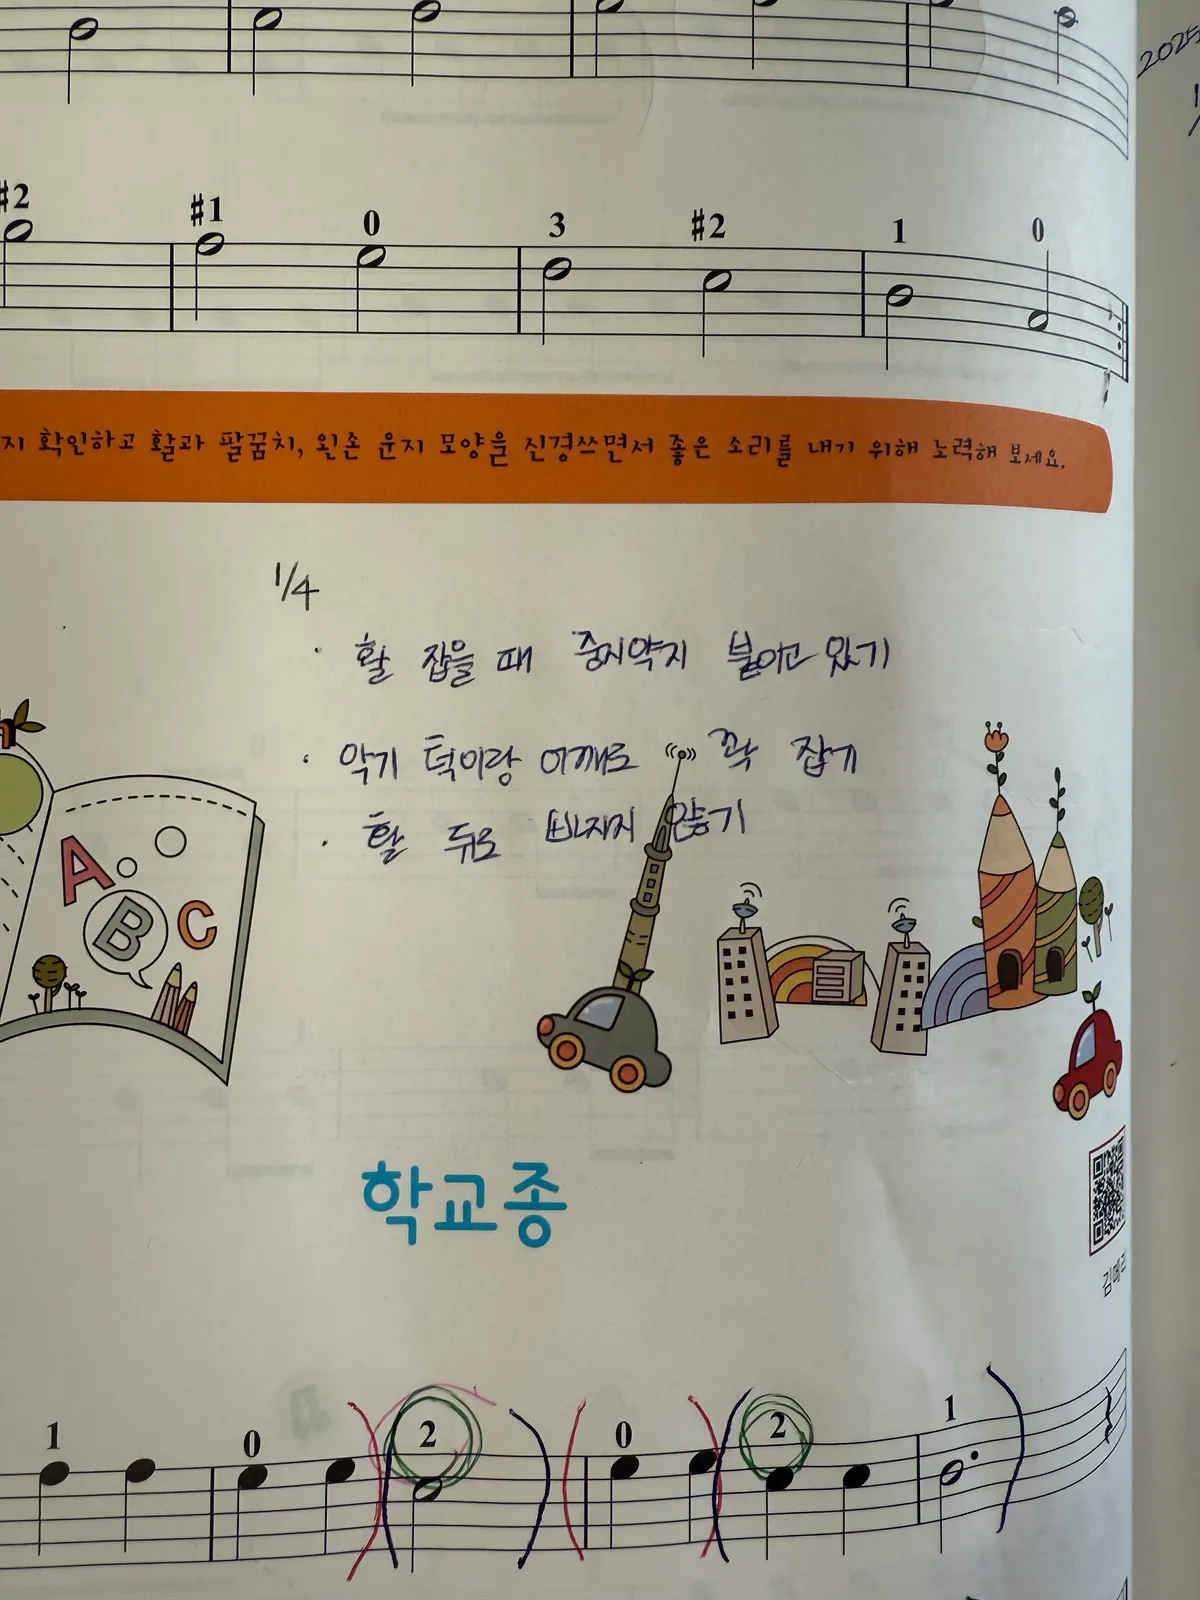 2025
#2 #1 0 3 #2 1 0
지 확인하고 활과 팔꿈치, 왼손 운지 모양을 신경쓰면서 좋은 소리를 내기 위해 노력해 보세요.
1/4
· 활 잡을 때 중지약지 붙이고 있기
· 악기 턱이랑 어깨로 꽉 잡기
· 활 뒤로 빠지지 않기
A B C
학교종
김메리
1 0 2 0 2 1